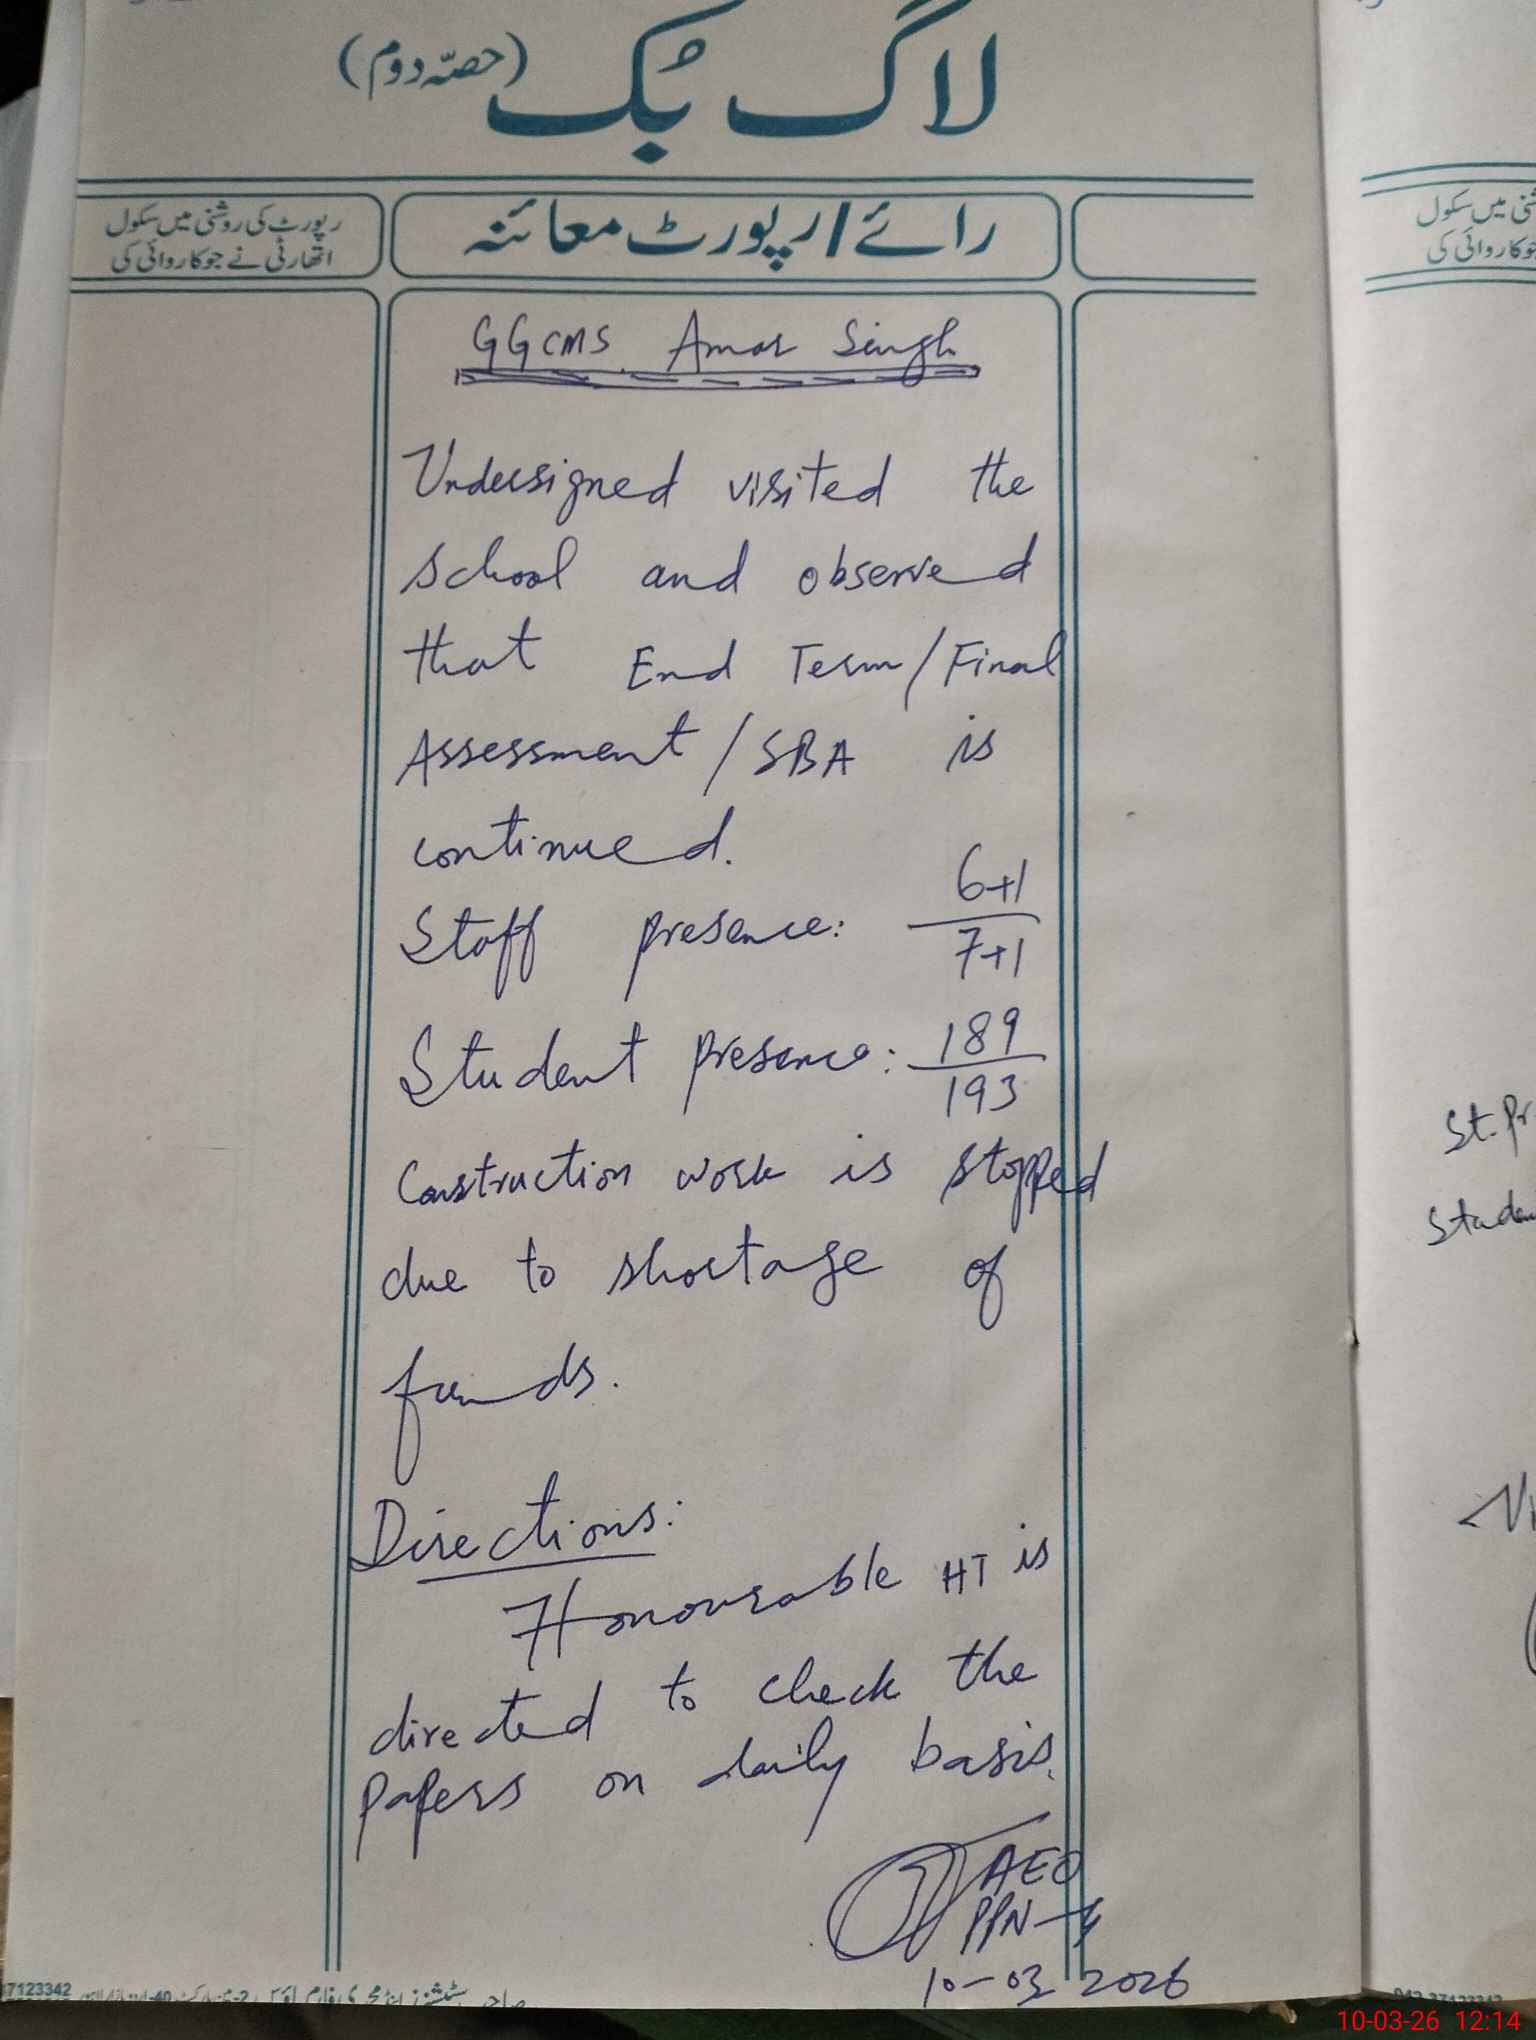 لاگ بُک (حصّہ دوم)
رائے/رپورٹ معائنہ
رپورٹ کی روشنی میں سکول
اتھارٹی نے جو کاروائی کی
GGCMS Amar Singh
Undersigned visited the
school and observed
that End Term/Final
Assessment/SBA is
continued.
Staff presence: 6+1
7+1
Student presence: 189
193
Construction work is stopped
due to shortage of
funds.
Directions:
Honourable HT is
directed to check the
papers on daily basis.
AEO
PPN-
10-03-2026
7123342
نی میں سکول
جو کاروائی کی
St. Pr
Studen
042-37123342
10-03-26 12:14